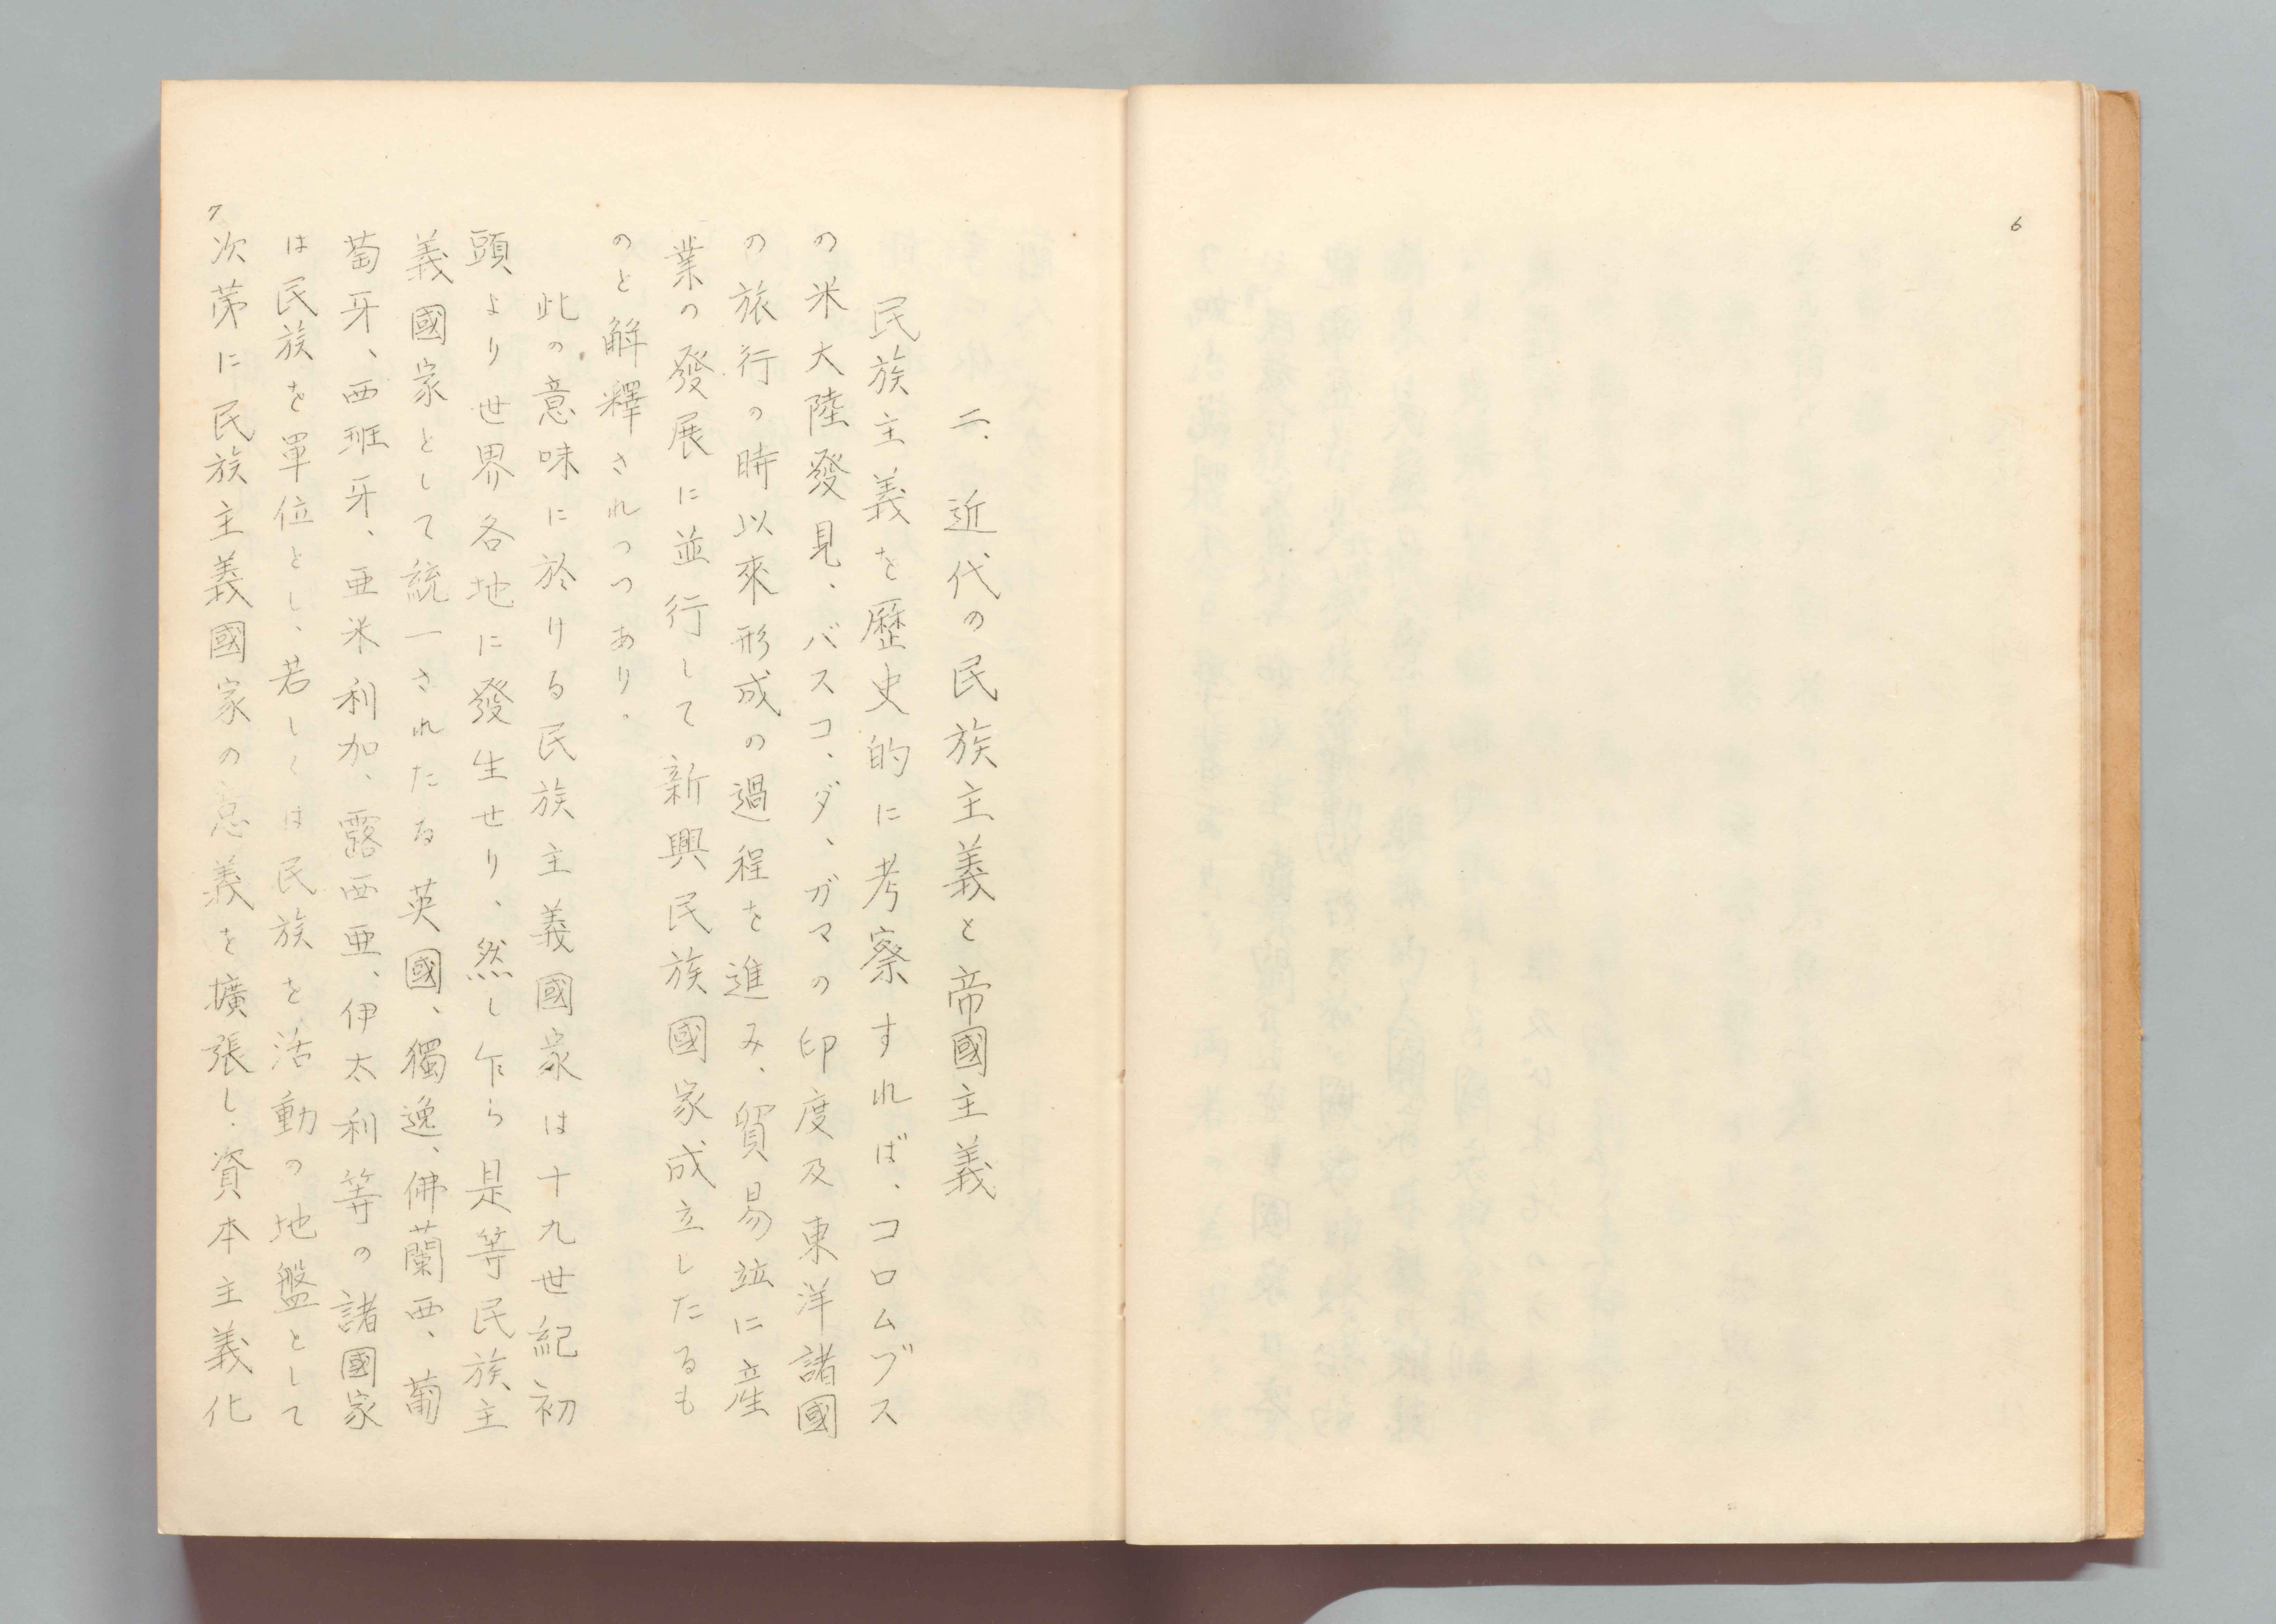 6
二、近代の民族主義と帝國主義
民族主義を歷史的に考察すれば、コロムブス
の米大陸發見、バスコ、ダ、ガマの印度及東洋諸國
の旅行の時以來形成の過程を進み、貿易竝に產
業の發展に並行して新興民族國家成立したるも
のと解釋されつつあり。
此の意味に於ける民族主義國家は十九世紀初
頭より世界各地に發生せり、然し乍ら是等民族主
義國家として統一されたる英國、獨逸、佛蘭西、葡
萄牙、西班牙、亜米利加、露西亜、伊太利等の諸國家
は民族を單位とし、若しくは民族を活動の地盤として
次第に民族主義國家の意義を擴張し、資本主義化
7